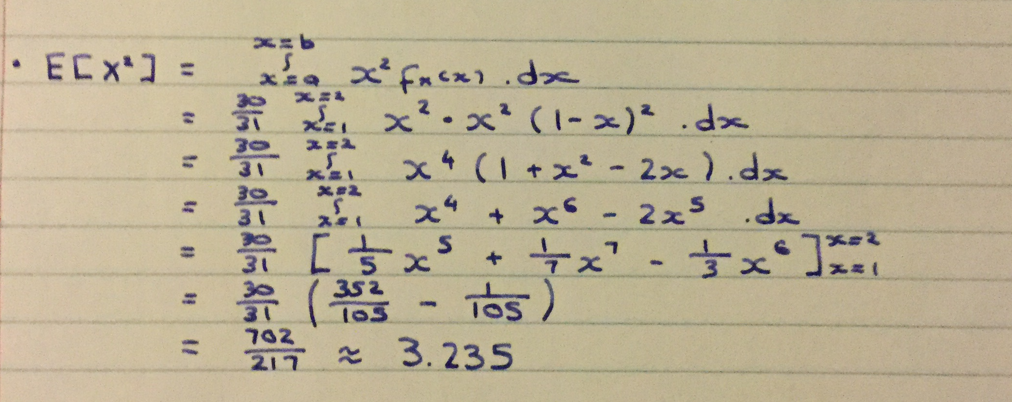 • E[X²] = ∫_{x=a}^{x=b} x² fₓ(x) . dx
= 30/31 ∫_{x=1}^{x=2} x² · x² (1-x)² . dx
= 30/31 ∫_{x=1}^{x=2} x⁴ (1 + x² - 2x) . dx
= 30/31 ∫_{x=1}^{x=2} x⁴ + x⁶ - 2x⁵ . dx
= 30/31 [ 1/5 x⁵ + 1/7 x⁷ - 1/3 x⁶ ]_{x=1}^{x=2}
= 30/31 ( 352/105 - 1/105 )
= 702/217 ≈ 3.235